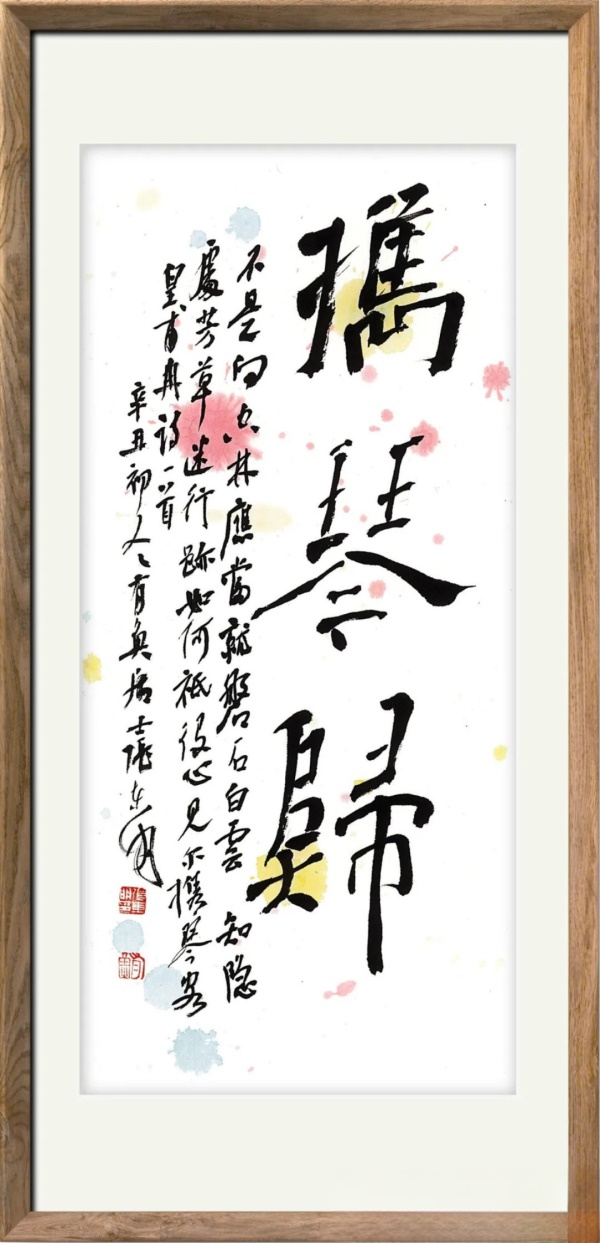 攜琴歸
不是向空林應當就磐石白雲知隐
處芳草迷行跡如何祇役心見尔携琴客
皇甫冉詩一首
辛丑初冬有居士張东明